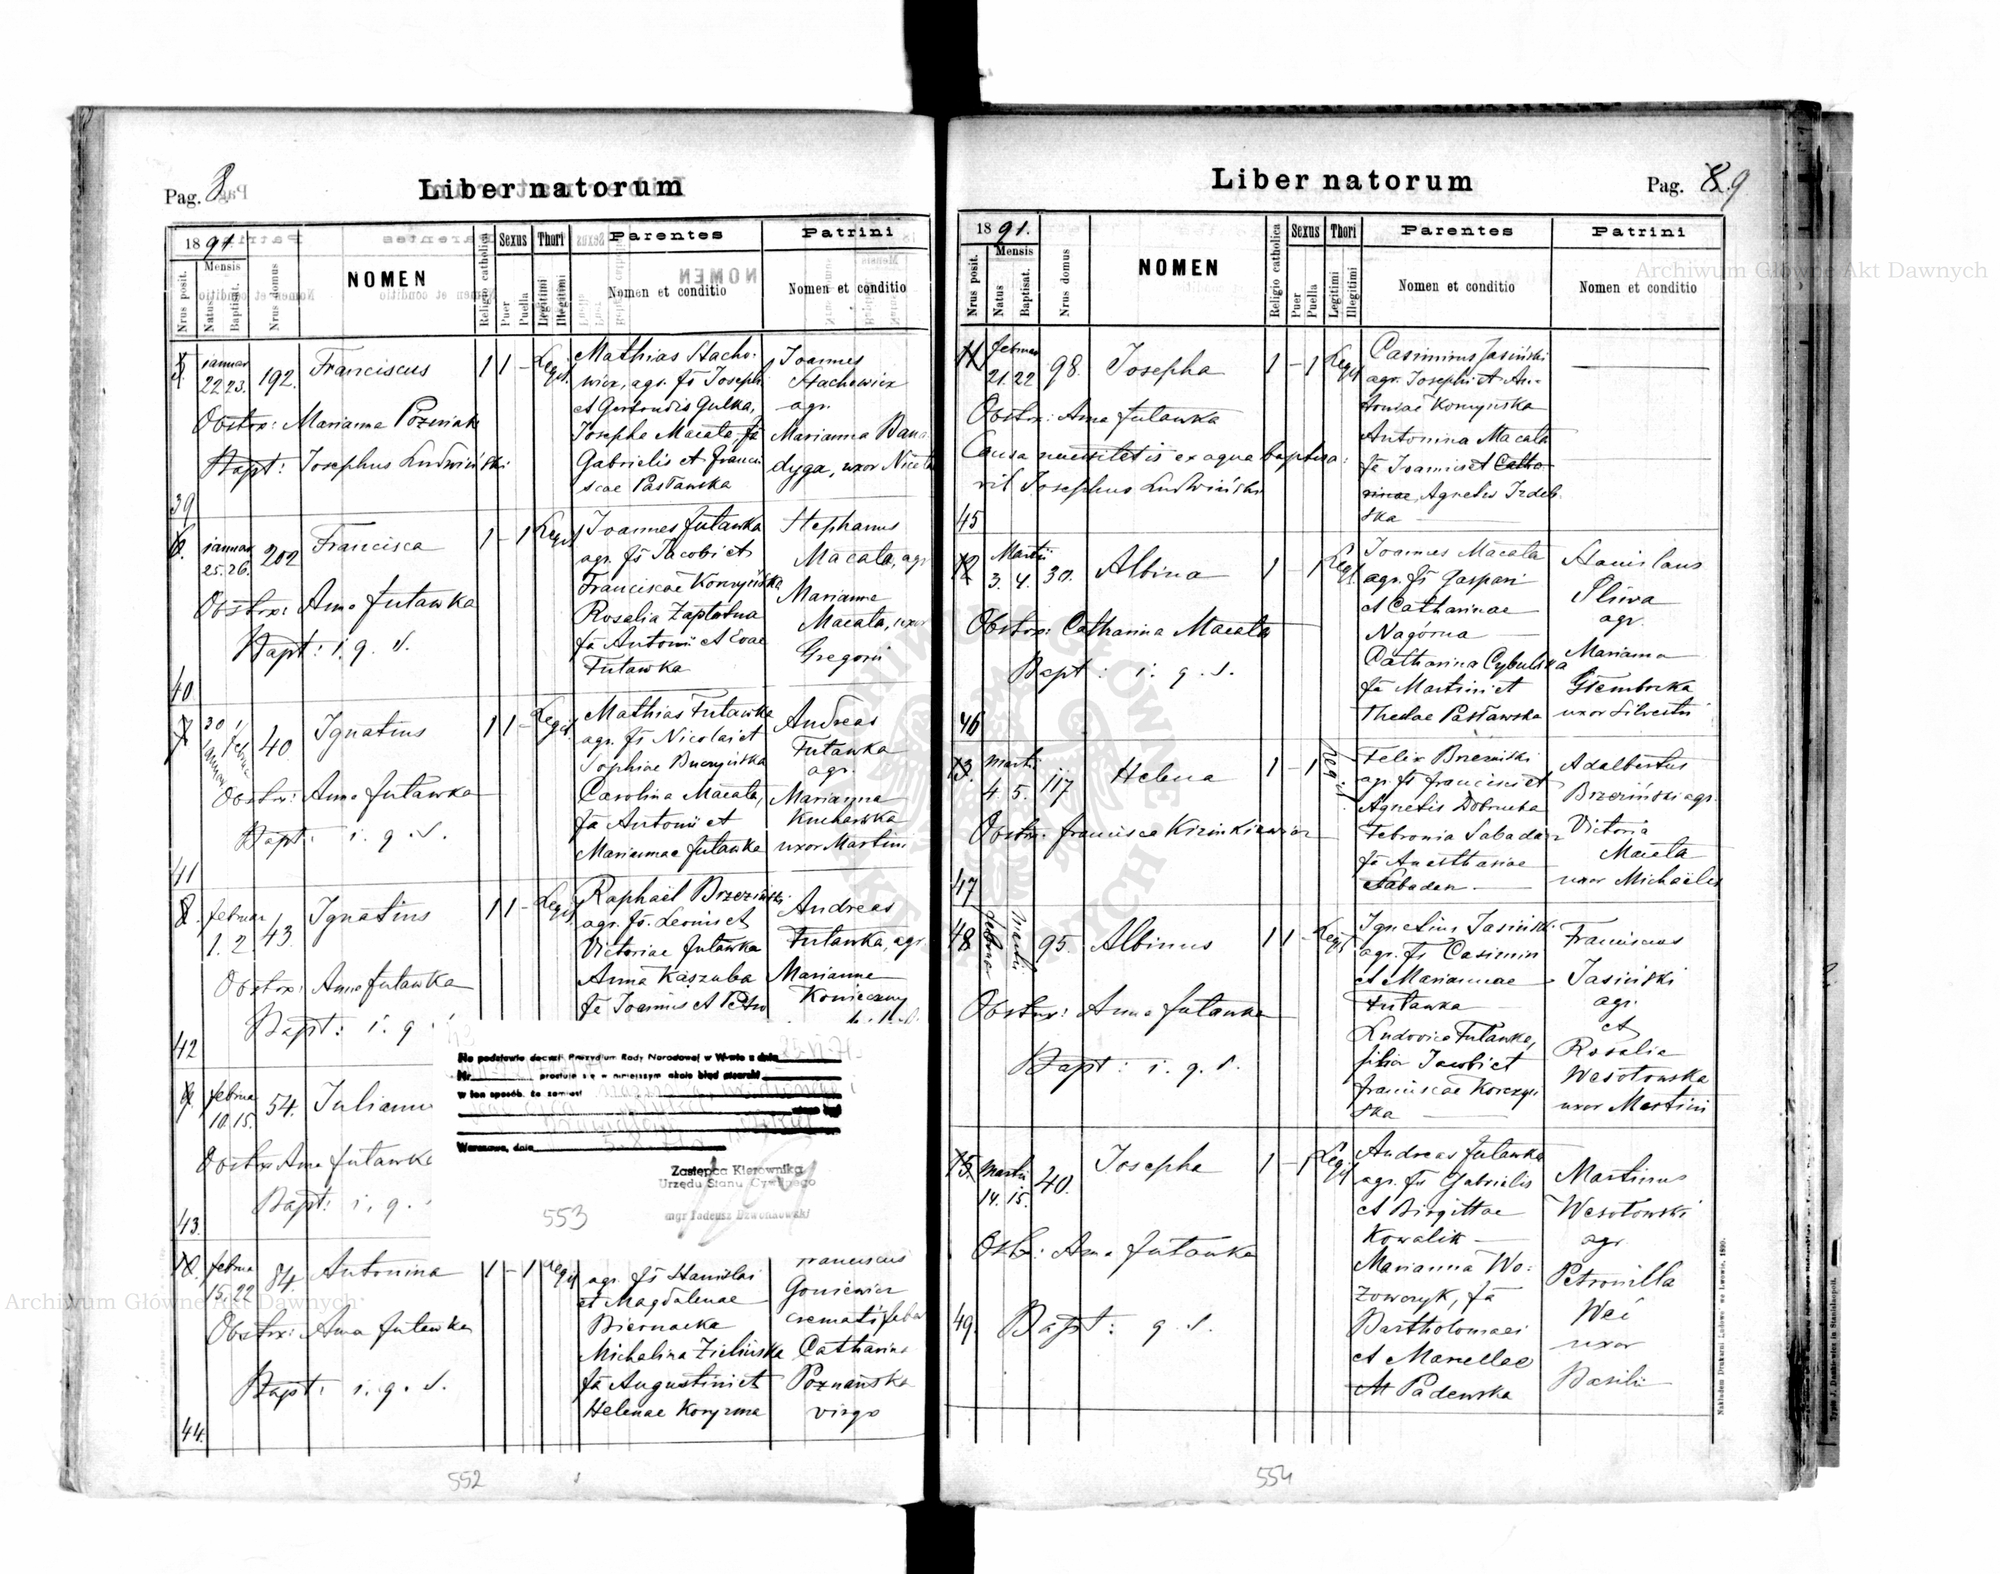 Pag. 8.
Liber natorum
1891.
Nrus posit.
Mensis
Natus
Baptisat.
Nrus domus
NOMEN
Religio catholica
Sexus
Puer
Puella
Thori
Legitimi
Illegitimi
Parentes
Nomen et conditio
Patrini
Nomen et conditio
39
januar
22 23.
192.
Franciscus
1 1 - Legit.
Obstrx: Marianna Poźniak
Bapt: Josephus Ludwiński
Mathias Stacho-
wicz, agr. fs Joseph
et Gertrudis Gulka,
Josepha Macała, fa
Gabrielis et Franci
scae Pasławska
Joannes
Stachowicz
agr.
Marianna Bana
dyga, uxor
40
6.
januar
25. 26.
202
Francisca
1 - 1 Legit
Obstrx: Anna Futawka
Bapt: i. q. s.
Joannes Futawka
agr. fs Jacobi et
Franciscae Korczyńska
Rosalia Zapłotna
fa Antonii et Evae
Futawka
Stephanus
Macała, agr
Marianna
Macała, uxor
Gregorii
41
7
30 1
40
Ignatius
1 1 - Legit
Obstrx: Anna Futawka
Bapt: i. q. s.
Mathias Futawka
agr. fs Nicolai et
Sophiae
Carolina Macała,
fa Antonii et
Mariannae Futawka
Andreas
Futawka
agr.
Marianna
Kucharska
uxor Martini
42
8.
februar
1. 2
43.
Ignatius
1 1 - Legit
Obstrx: Anna Futawka
Bapt: i. q.
Raphael Brzeziński
agr. fs. Leonis et
Victoriae Futawka
Anna Kaszuba
fa Joannis et Petro
Andreas
Futawka, agr.
Marianna
Konieczny
43.
9
februa
10. 15.
54.
Juliann
Obstrx Anna Futawka
Bapt: i. q.
Na podstawie decyzji Prezydium Rady Narodowej w W-wie z dnia
Nr. prostuje się w niniejszym akcie błąd pisarski
w ten sposób, że zamiast
winno być
Warszawa, dnia
Zastępca Kierownika
Urzędu Stanu Cywilnego
mgr Tadeusz Dzwonkowski
553
44.
10.
februa
15. 22
84.
Antonina
1 - 1 Legit
Obstrx: Anna Futawka
Bapt: i. q. s.
agr. fs Stanislai
et Magdalenae
Biernacka
Michalina Zielińska
fa Augustini et
Helenae Koryzma
Franciscus
Goniewicz
Catharina
Poznańska
virgo
552
Liber natorum
Pag. 8. 9
1891.
Nrus posit.
Mensis
Natus
Baptisat.
Nrus domus
NOMEN
Religio catholica
Sexus
Puer
Puella
Thori
Legitimi
Illegitimi
Parentes
Nomen et conditio
Patrini
Nomen et conditio
45
11
februar
21. 22
98.
Josepha
1 - 1 Legit
Obstrx: Anna Futawka
Causa necessitatis ex aqua baptisa-
vit Josephus Ludwiński
Casimirus Jasiński
agr. Josephi et An-
toniae Korczyńska
Antonina Macała
fa Joannis et Catha-
rinae Agnetis Izdeb
ska
46
12
Martii
3. 4.
30.
Albina
1 - 1 Legit
Obstrx: Catharina Macała
Bapt: i. q. s.
Joannes Macała
agr. fs Gaspari
et Catharinae
Nagórna
Catharina Cybulska
fa Martini et
Theclae Pasławska
Stanislaus
Śliwa
agr.
Marianna
Głembocka
uxor Silvestri
47
13.
Martii
4. 5.
117
Helena
1 - 1 Legit.
Obstrx. Francisca
Felix Brzeziński
agr. fs Francisci et
Agnetis Dobrucka
Febronia Sabadasz
fa Anasthasiae
Sabadasz
Adalbertus
Brzeziński agr.
Victoria
Macała
uxor Michaëlis
48
februar
Martii
95.
Albinus
1 1 - Legit
Obstrx: Anna Futawka
Bapt: i. q. s.
Ignatius Jasiński
agr. fs Casimiri
et Mariannae
Futawka
Ludovica Futawka,
filia Jacobi et
Franciscae Korczyń
ska
Franciscus
Jasiński
agr.
et
Rosalia
Wesołowska
uxor Martini
49.
15.
Martii
14. 15.
40.
Josepha
1 - 1 Legit
Obstr: Anna Futawka
Bapt: q. s.
Andreas Futawka
agr. fs Gabrielis
et Birgittae
Kowalik
Marianna Wo-
zowczyk, fa
Bartholomaei
et Marcellae
Padewska
Martinus
Wesołowski
agr
Petronilla
uxor
Basilii
Nakładem Drukarni Ludowej we Lwowie, 1890.
554
Archiwum Główne Akt Dawnych
Archiwum Główne Akt Dawnych